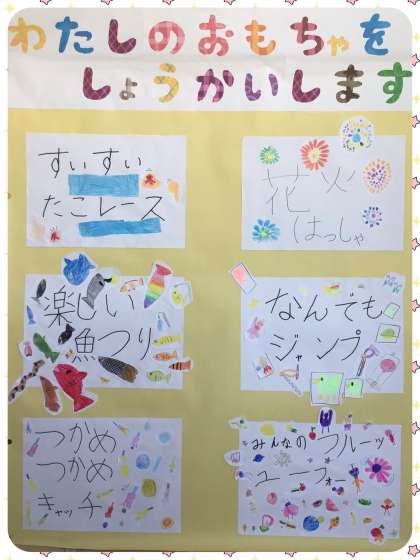 わたしのおもちゃを
しょうかいします
すいすい
たこレース
花火
はっしゃ
楽しい
魚つり
なんでも
ジャンプ
つかめ
つかめ
キャッチ
みんなの フルーツ
ユーフォー